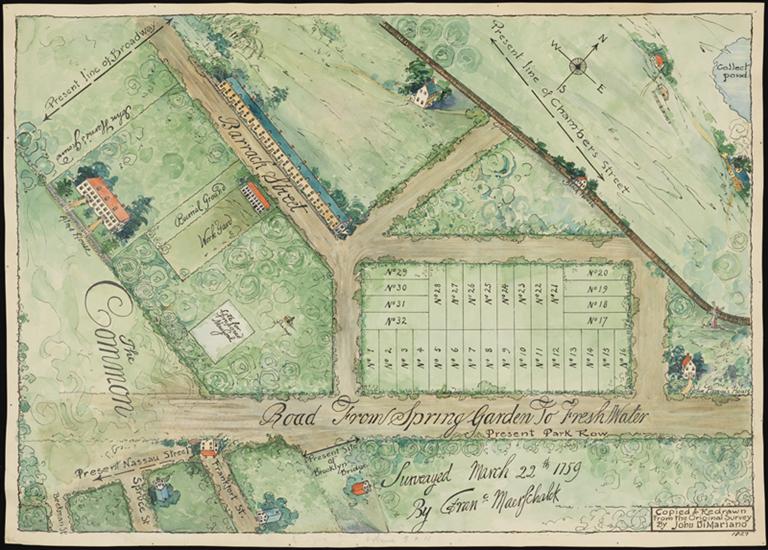 Present line of Broadway
Present line of Chambers Street
N
W
E
S
Collect
pond
Barrack Street
Burial Ground
Work Yard
The
Common
Nº 29
Nº 30
Nº 31
Nº 32
Nº 28
Nº 27
Nº 26
Nº 25
Nº 24
Nº 23
Nº 22
Nº 21
Nº 20
Nº 19
Nº 18
Nº 17
Nº 1
Nº 2
Nº 3
Nº 4
Nº 5
Nº 6
Nº 7
Nº 8
Nº 9
Nº 10
Nº 11
Nº 12
Nº 13
Nº 14
Nº 15
Nº 16
Road From Spring Garden To Fresh Water
Present Park Row
Present Nassau Street
Present Site
of
Brooklyn
Bridge
Spruce St
Frankfort St.
Beekman St
Surveyed March 22th 1759
By Franc Maerschalck
Copied & Redrawn
From The Original Survey
By John DiMariano